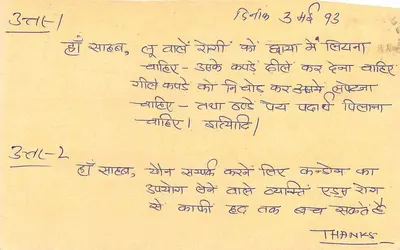 दिनांक 3 मई 93
उत्तर-1
हाँ साहब, लू वाले रोगी को छाया में लिटाना
चाहिए - उसके कपड़े ढीले कर देना चाहिए
गीले कपडे को निचोड कर उसमे लपेटना
चाहिए - तथा ठण्डे पेय पदार्थ पिलाना
चाहिए। इत्यादि।
उत्तर-2
हाँ साहब, यौन सम्पर्क करने लिए कन्डोम का
उपयोग लेने वाले व्यक्ति एड्स रोग
से काफी हद तक बच सकते है
THANKS